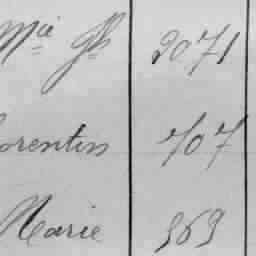 Mie Jh 2071
orentin 707
Marie 969